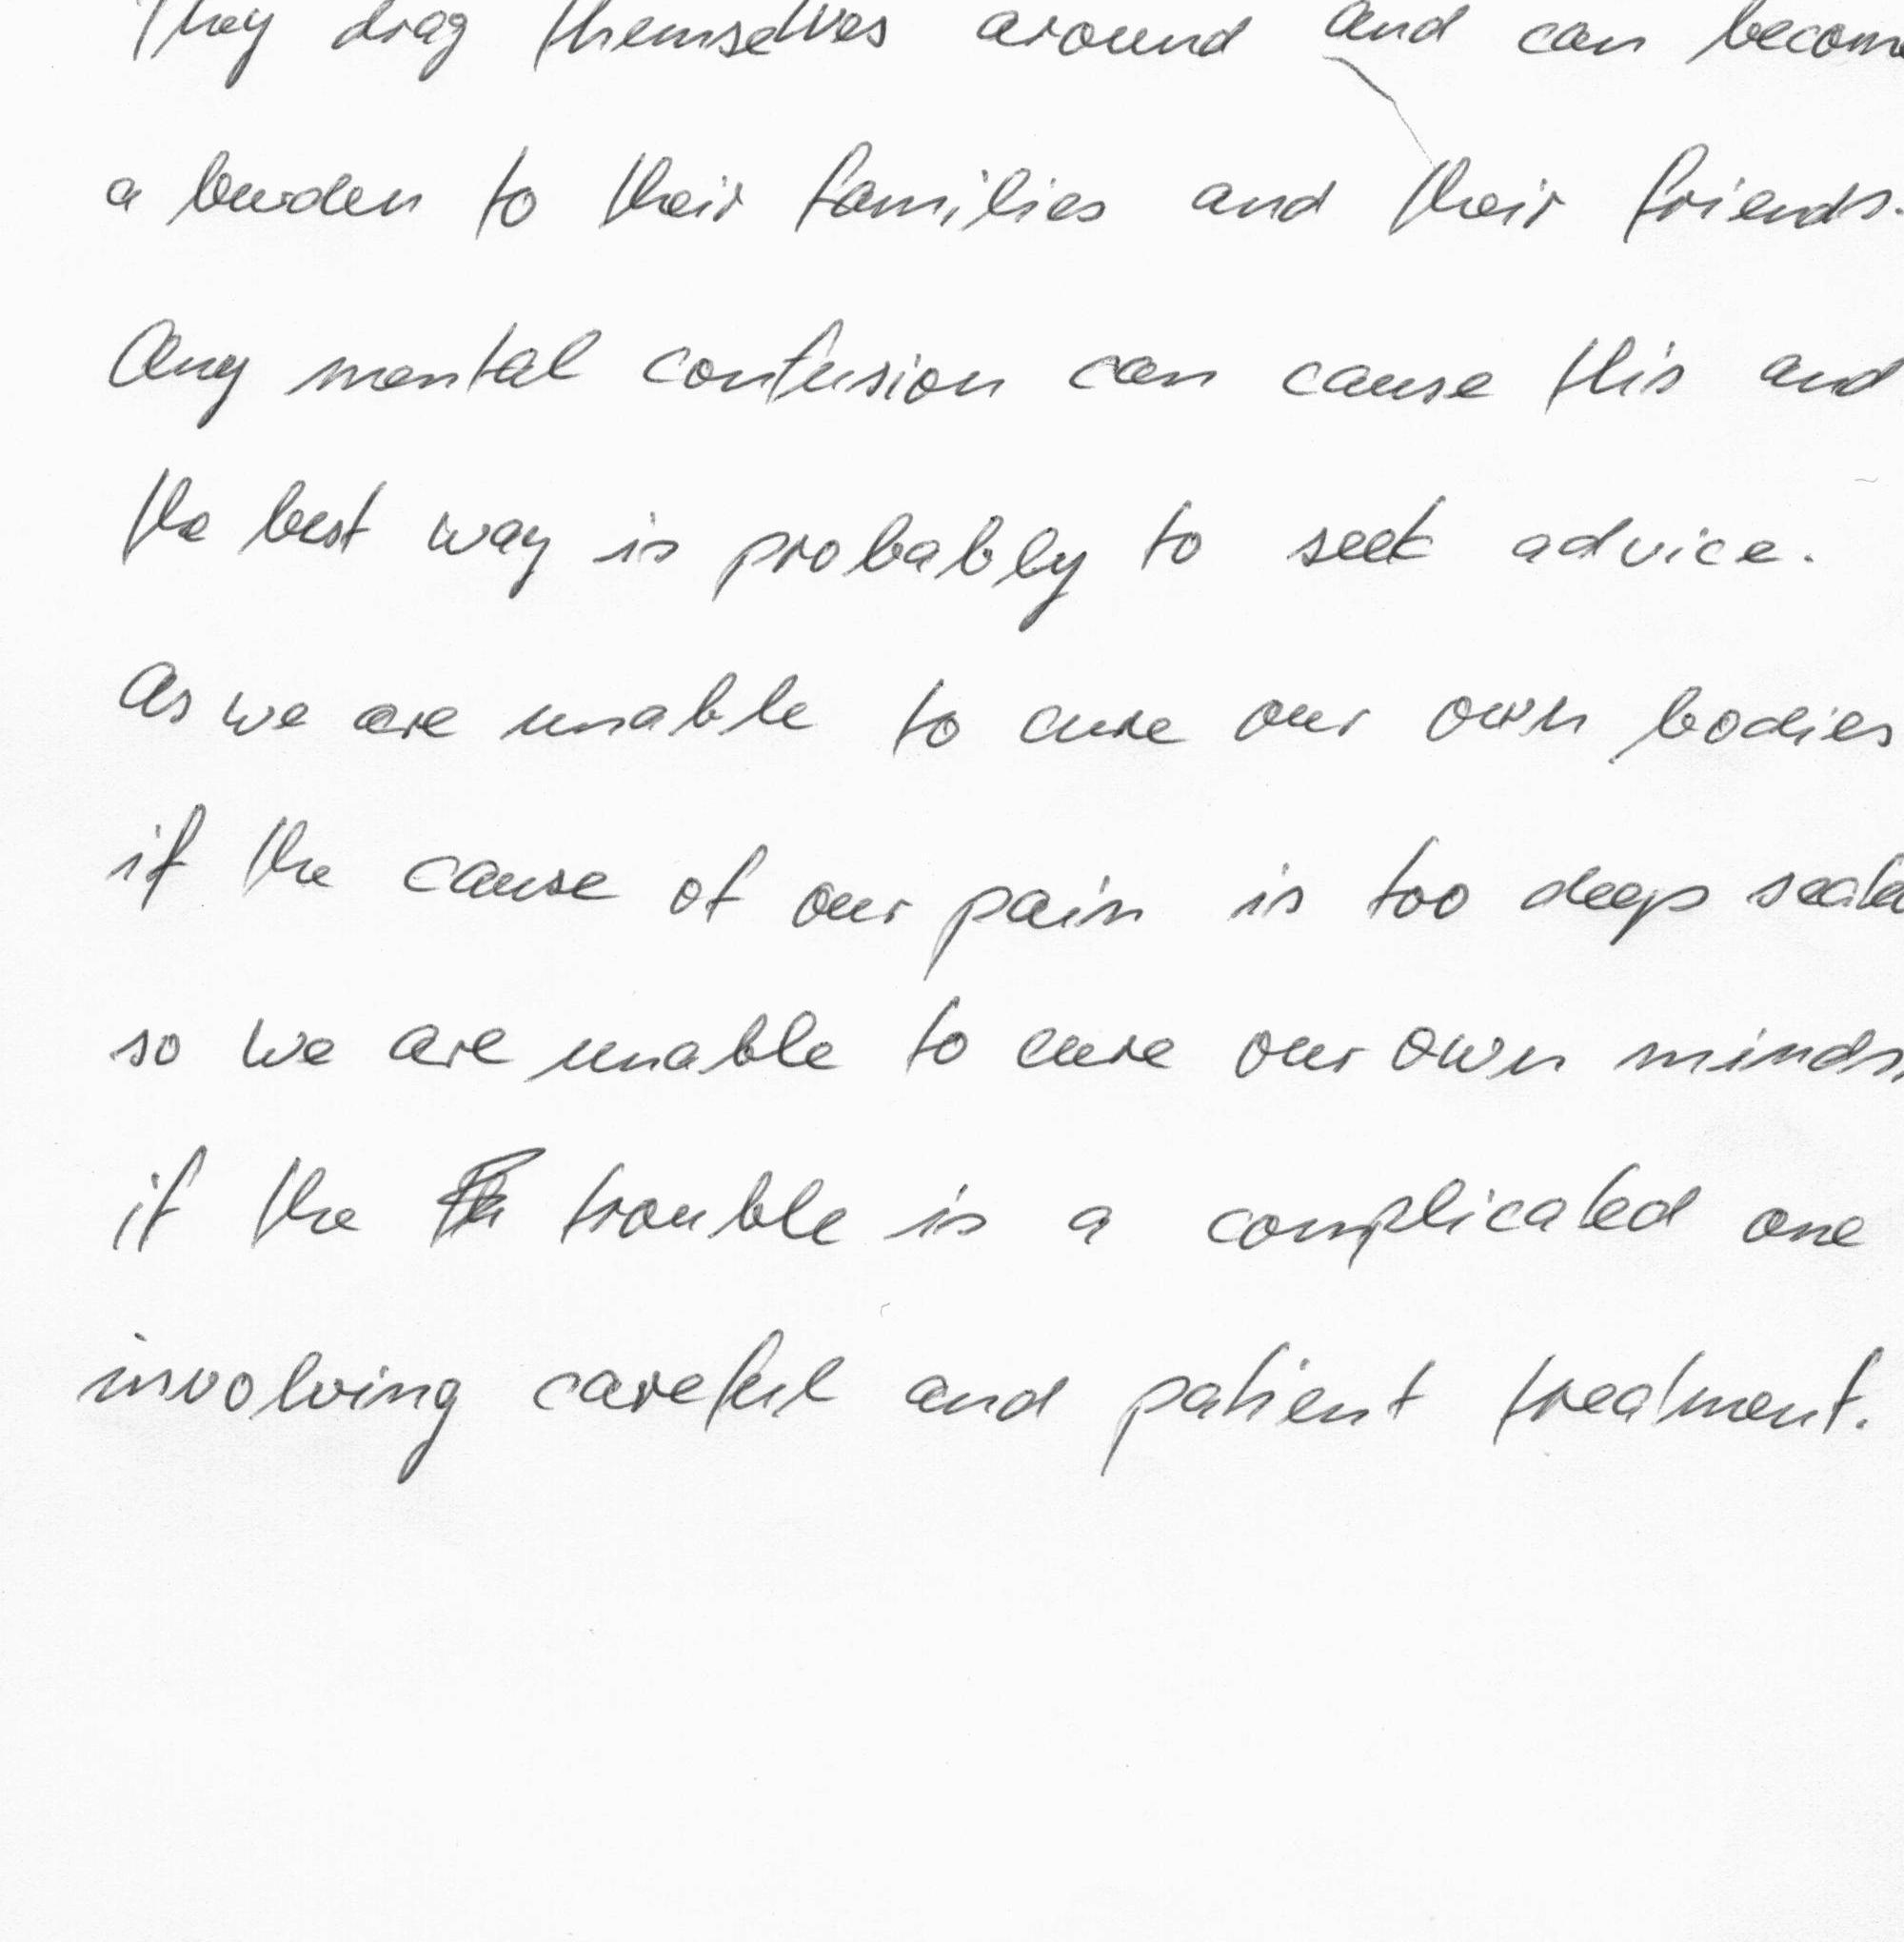 They drag themselves around and can become
a burden to their families and their friends.
Any mental confusion can cause this and
the best way is probably to seek advice.
As we are unable to cure our own bodies
if the cause of our pain is too deep seated
so we are unable to cure our own minds,
if the trouble is a complicated one
involving careful and patient treatment.